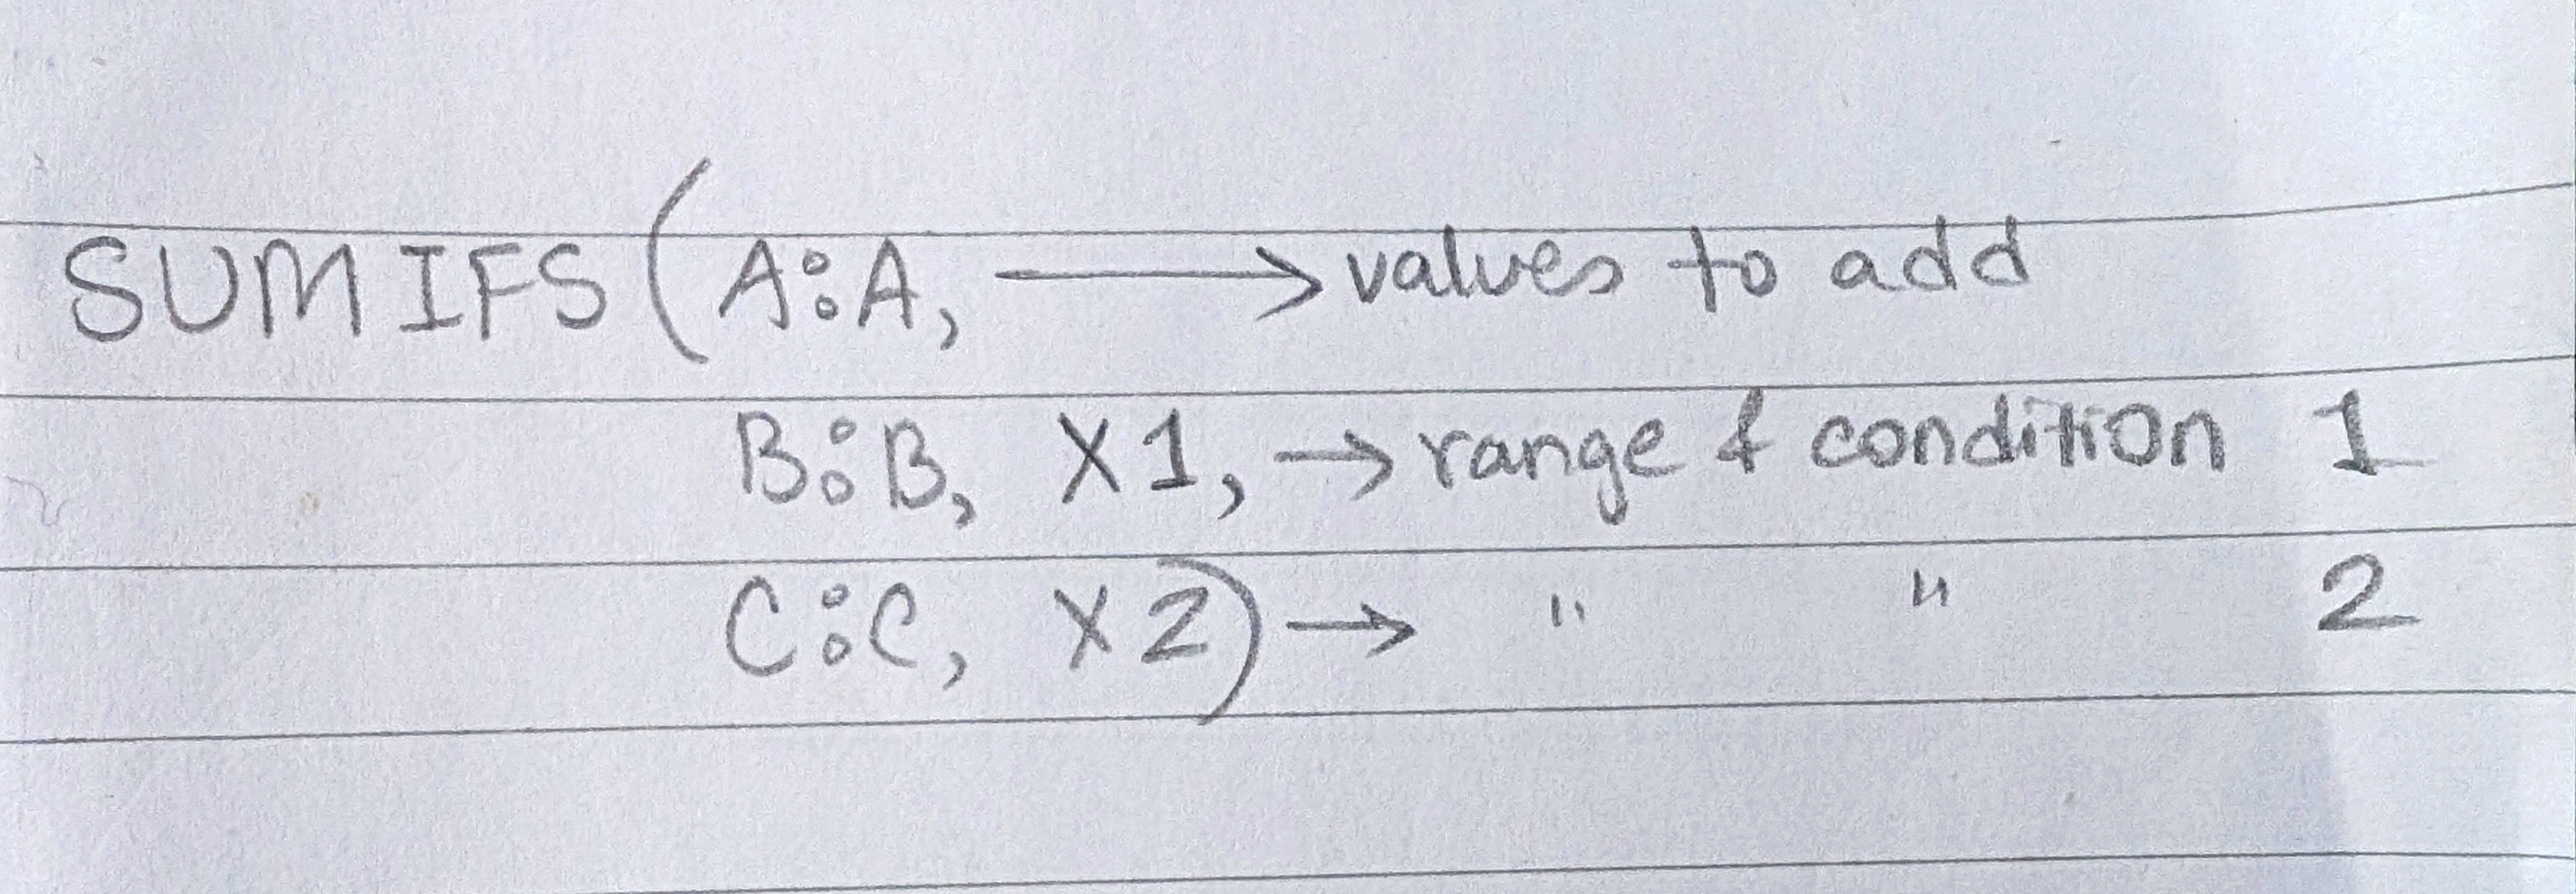 SUMIFS(A:A, → values to add
B:B, X1, → range & condition 1
C:C, X2) → " " 2